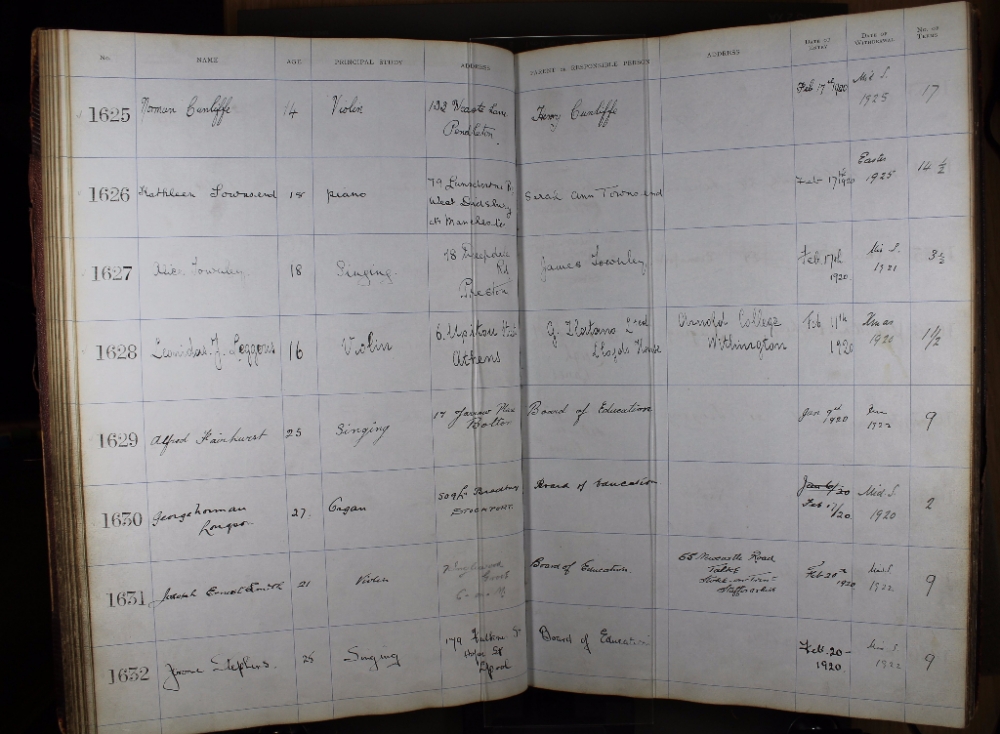 No. NAME AGE PRINCIPAL STUDY ADDRESS PARENT or RESPONSIBLE PERSON ADDRESS DATE OF ENTRY DATE OF WITHDRAWAL No. OF TERMS
1625 Norman Cunliffe 14 Violin 132 Weaste Lane Henry Cunliffe Feb 17th 1920 Mid S. 1925 17
Pendleton
1626 Kathleen Townsend 18 piano 79 Sarah Ann Townsend Feb 17th 1920 Easter 1925 14 1/2
West Didsbury
Manchester
1627 Alice Townley 18 Singing. 18 James Townley Feb. 17th 1920 Mid S. 1921 3 1/2
Rd
Preston
1628 Leonidas. 16 Violin 6. G. Arnold College Feb 11th 1920 Xmas 1920 1 1/2
Athens Lloyds House Withington
1629 Alfred Fairhurst 25 Singing 17 Yarrow Place Board of Education Jan 9th 1920 1922 9
Bolton
1630 George Norman 27. Organ Board of Education Jan 6/20 Mid. S. 1920 2
Stockport Feb 17/20
1631 Joseph Ernest 21 Violin Board of Education. 55 Newcastle Road Feb 20th 1920 Mid S. 1922 9
Grove Talke
Stoke-on-Trent
1632 Stephens. 25 Singing 179 Board of Education Feb. 20- 1920 Mid S 1922 9
Hope St
L'pool